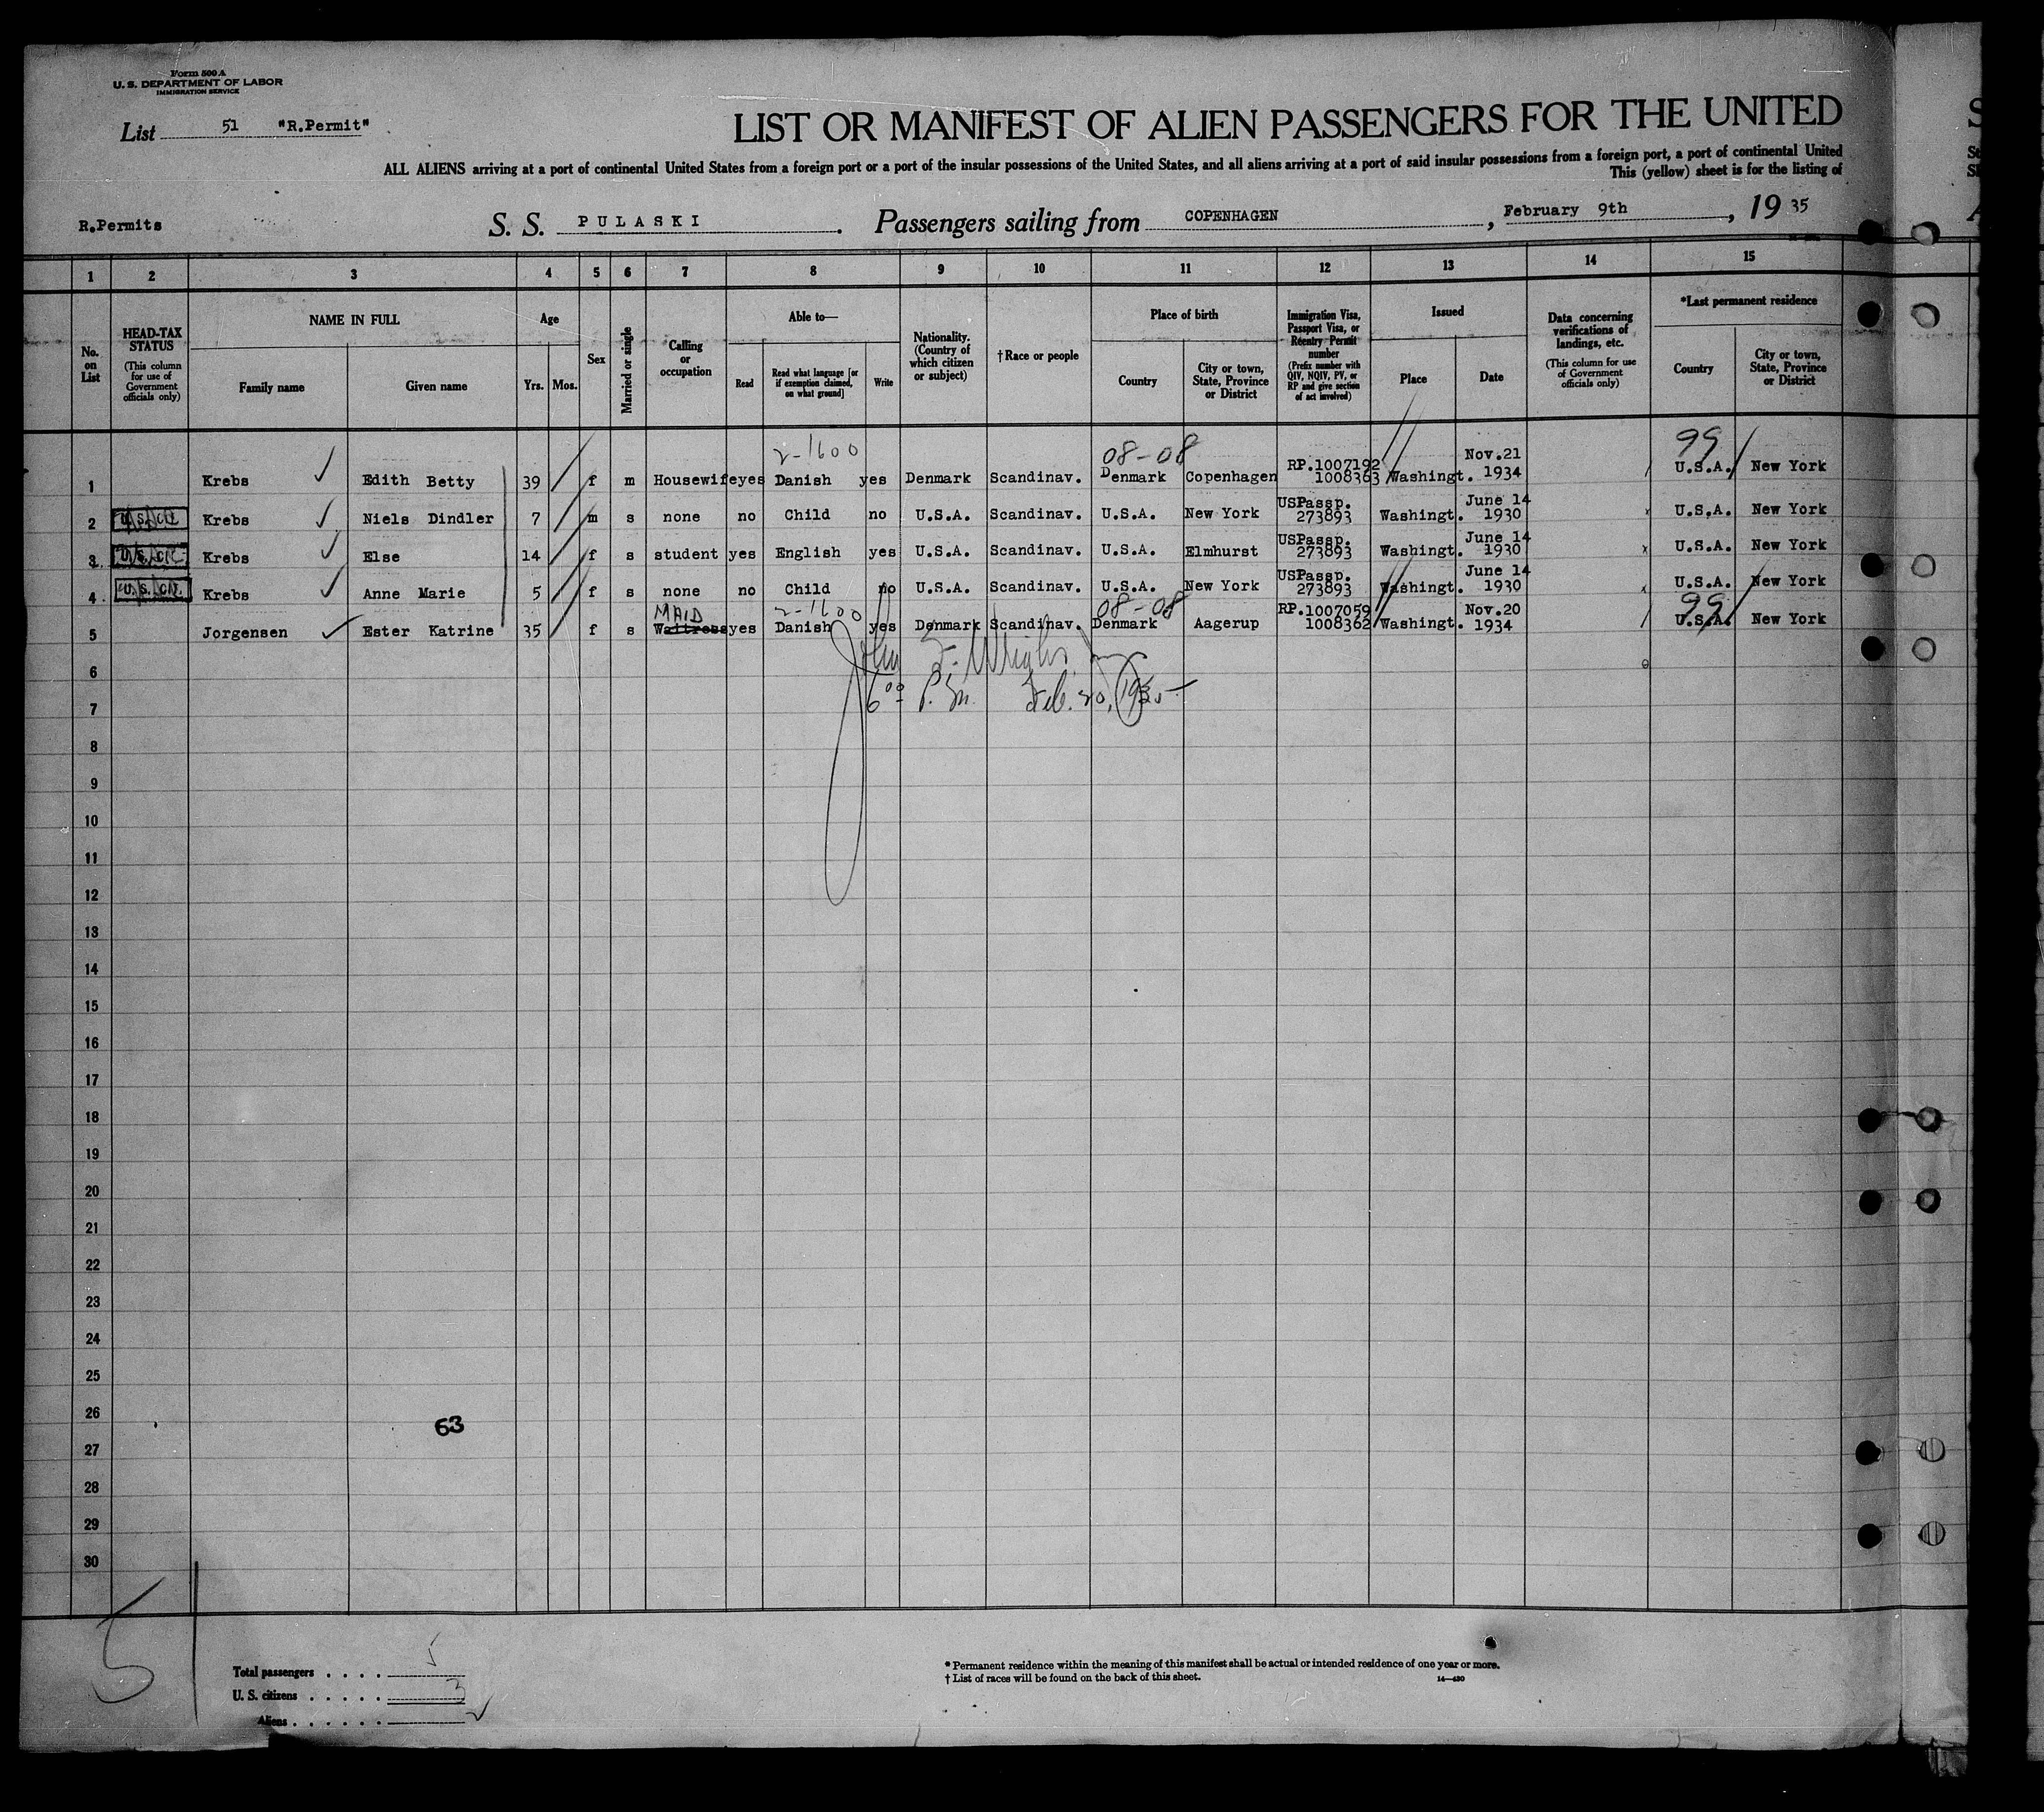 Form 500 A
U. S. DEPARTMENT OF LABOR
IMMIGRATION SERVICE
List 51 "R.Permit"
LIST OR MANIFEST OF ALIEN PASSENGERS FOR THE UNITED
ALL ALIENS arriving at a port of continental United States from a foreign port or a port of the insular possessions of the United States, and all aliens arriving at a port of said insular possessions from a foreign port, a port of continental United
This (yellow) sheet is for the listing of
R.Permits S. S. PULASKI. Passengers sailing from COPENHAGEN, February 9th, 19 35
1 2 3 4 5 6 7 8 9 10 11 12 13 14 15
No. on List
HEAD-TAX STATUS
(This column for use of Government officials only)
NAME IN FULL
Family name Given name
Age
Yrs. Mos.
Sex
Married or single
Calling or occupation
Able to—
Read
Read what language [or if exemption claimed, on what ground]
Write
Nationality. (Country of which citizen or subject)
†Race or people
Place of birth
Country
City or town, State, Province or District
Immigration Visa, Passport Visa, or Reentry Permit number
(Prefix number with QIV, NQIV, PV, or RP and give section of act involved)
Issued
Place Date
Data concerning verifications of landings, etc.
(This column for use of Government officials only)
*Last permanent residence
Country
City or town, State, Province or District
2-1600 08-08 Nov.21 99
1 Krebs Edith Betty 39 f m Housewife yes Danish yes Denmark Scandinav. Denmark Copenhagen RP.1007192 1008363 Washingt. 1934 U.S.A. New York
2 U.S. Cit. Krebs Niels Dindler 7 m s none no Child no U.S.A. Scandinav. U.S.A. New York USPassp. 273893 Washingt. June 14 1930 x U.S.A. New York
3 U.S. Cit. Krebs Else 14 f s student yes English yes U.S.A. Scandinav. U.S.A. Elmhurst USPassp. 273893 Washingt. June 14 1930 x U.S.A. New York
4 U.S. Cit. Krebs Anne Marie 5 f s none no Child no U.S.A. Scandinav. U.S.A. New York USPassp. 273893 Washingt. June 14 1930 x U.S.A. New York
MAID 2-1600 08-08 99
5 Jorgensen Ester Katrine 35 f s Waitress yes Danish yes Denmark Scandinav. Denmark Aagerup RP.1007059 1008362 Washingt. Nov.20 1934 U.S.A. New York
6
7 6 00 P. M. Feb. 20, 1935
8
9
10
11
12
13
14
15
16
17
18
19
20
21
22
23
24
25
26 63
27
28
29
30
5
Total passengers . . . . 5
U. S. citizens . . . . . 3
Aliens . . . . . . 2
* Permanent residence within the meaning of this manifest shall be actual or intended residence of one year or more.
† List of races will be found on the back of this sheet. 14—430